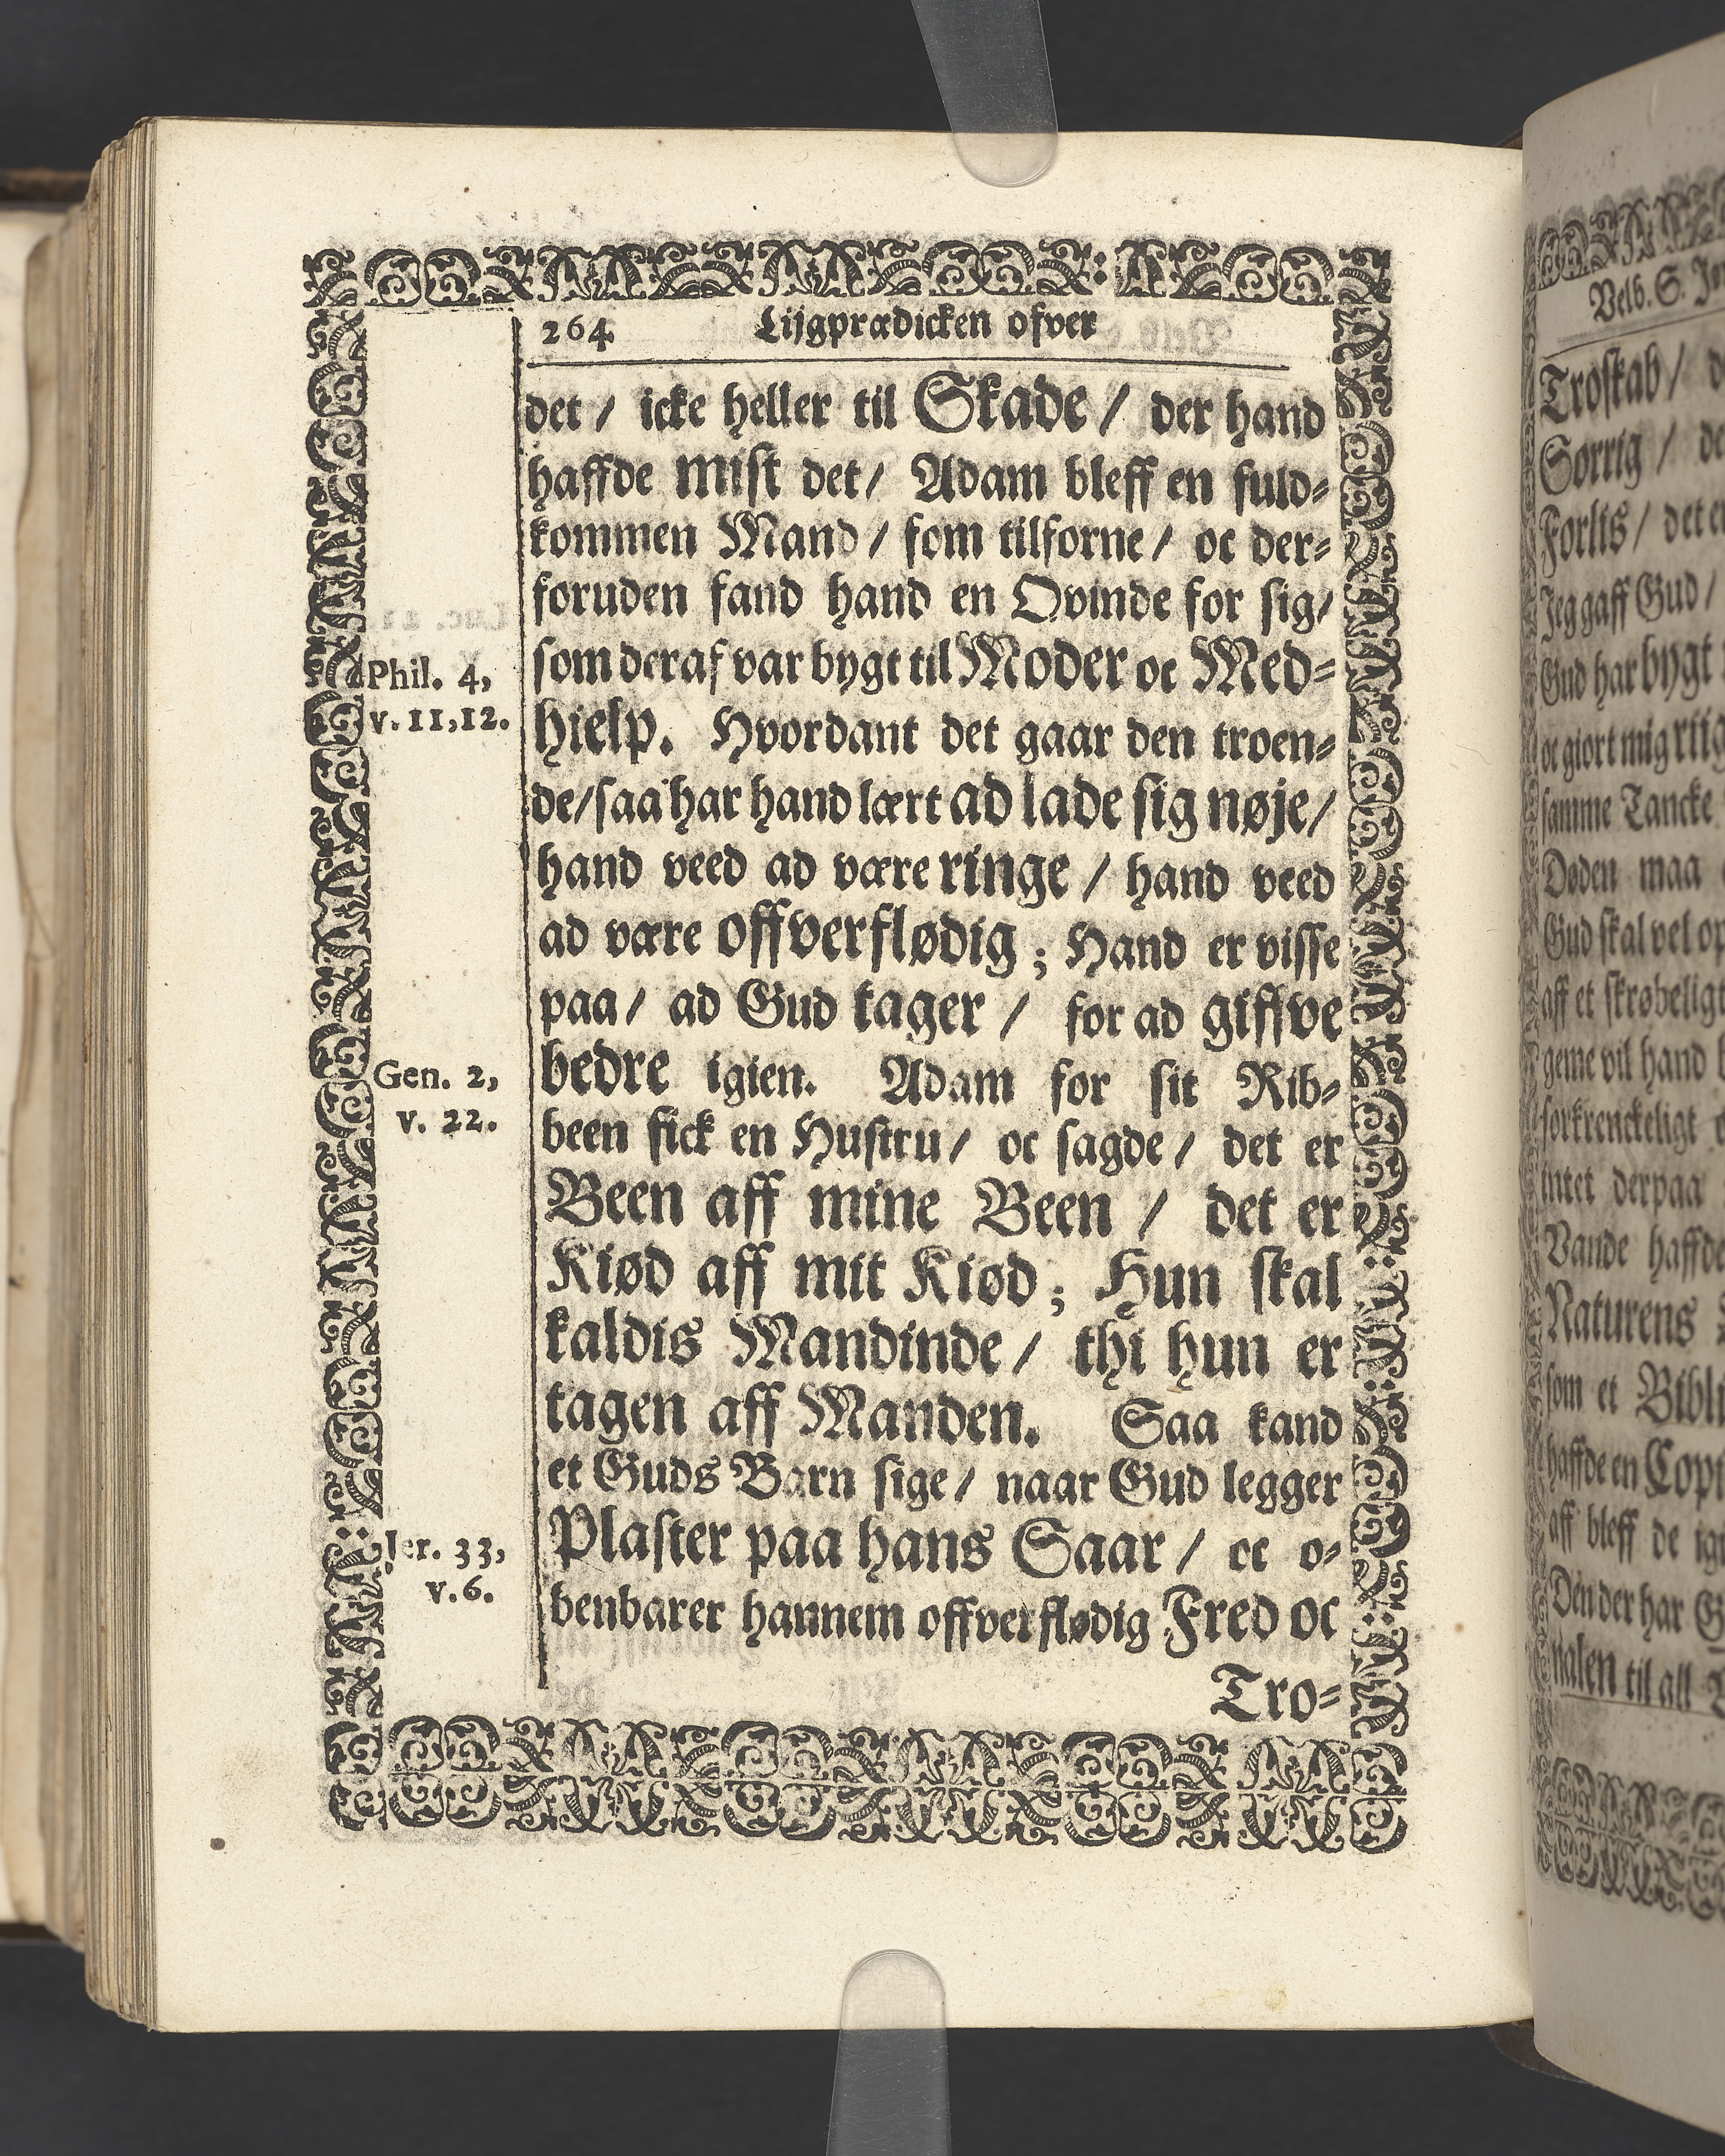 264 Lijgprædicken ofver
det / icke heller til Skade / der hand
haffde mist det / Adam bleff en fuld-
kommen Mand / som tilforne / oc der-
foruden fand hand en Qvinde for sig /
som deraf var bygt til Moder oc Med-
hielp. Hvordant det gaar den troen-
de / saa har hand lært ad lade sig nøje /
hand veed ad være ringe / hand veed
ad være offverflødig ; Hand er visse
paa / ad Gud tager / for ad giffve
bedre igien. Adam for sit Rib-
been fick en Hustru / oc sagde / det er
Been aff mine Been / det er
Kiød aff mit Kiød ; Hun skal
kaldis Mandinde / thi hun er
tagen aff Manden. Saa kand
et Guds Barn sige / naar Gud legger
Plaster paa hans Saar / oc o-
benbarer hannem offverflødig Fred oc
Tro-
Phil. 4,
v. 11,12.
Gen. 2,
v. 22.
Jer. 33,
v. 6.
Velb. S.
Troskab /
Sorrig /
Forlis / det
Jeg gaff Gud /
Gud har bygt
oc giort mig
samme Tancke
Døden maa
Gud skal vel
aff et
gerne vil hand
intet derpaa
Vande haffde
Naturens
som et
haffde en
aff bleff de
Den der har
nalen til all